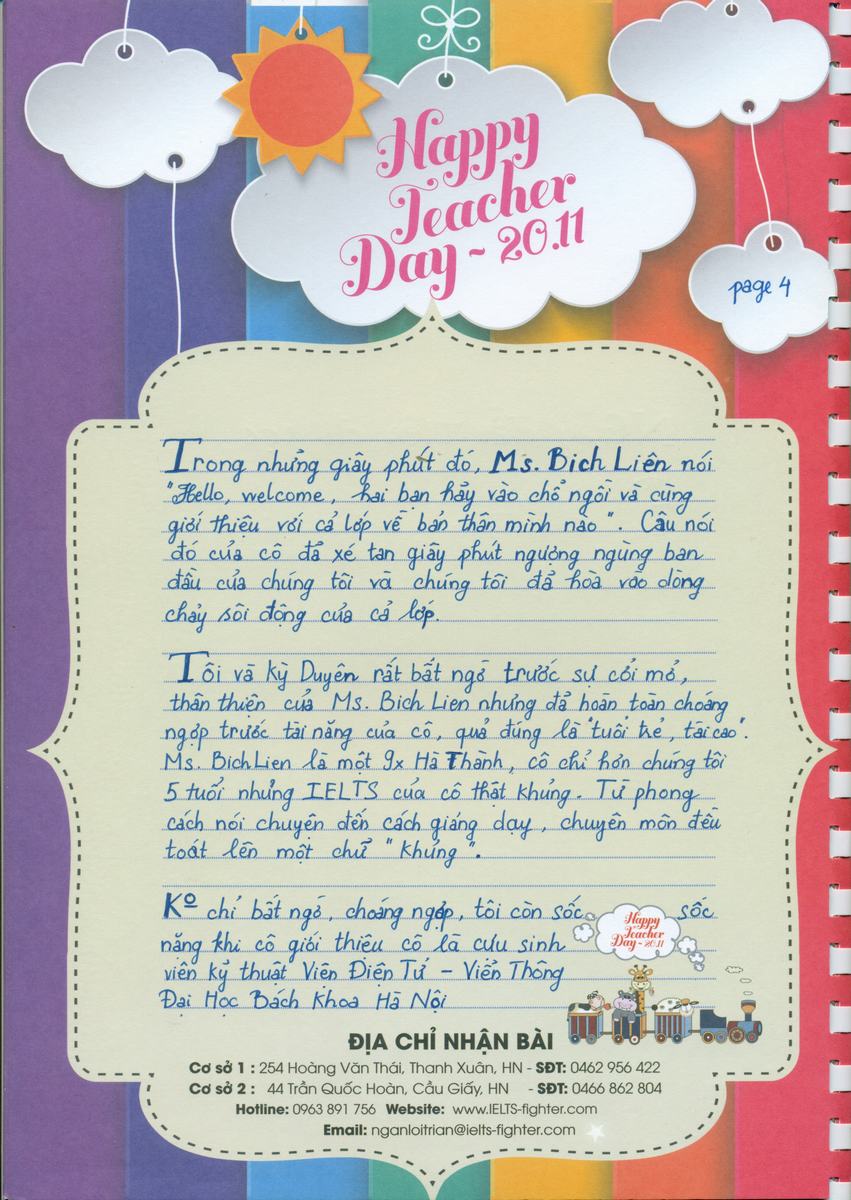 Happy
Teacher
Day - 20.11
page 4
Trong những giây phút đó, Ms. Bich Liên nói
"Hello, welcome, hai bạn hãy vào chỗ ngồi và cùng
giới thiệu với cả lớp về bản thân mình nào". Câu nói
đó của cô đã xé tan giây phút ngượng ngùng ban
đầu của chúng tôi và chúng tôi đã hòa vào dòng
chảy sôi động của cả lớp.
Tôi và Kỳ Duyên rất bất ngờ trước sự cởi mở,
thân thiện của Ms. Bich Lien nhưng đã hoàn toàn choáng
ngợp trước tài năng của cô, quả đúng là "tuổi trẻ, tài cao".
Ms. Bich Lien là một 9x Hà Thành, cô chỉ hơn chúng tôi
5 tuổi nhưng IELTS của cô thật khủng. Từ phong
cách nói chuyện đến cách giảng dạy, chuyên môn đều
toát lên một chữ "khủng".
Kº chỉ bất ngờ, choáng ngợp, tôi còn sốc sốc
Happy
Teacher
Day - 20.11
nặng khi cô giới thiệu cô là cựu sinh
viên kỹ thuật Viện Điện Tử - Viễn Thông
Đại Học Bách Khoa Hà Nội
ĐỊA CHỈ NHẬN BÀI
Cơ sở 1 : 254 Hoàng Văn Thái, Thanh Xuân, HN - SĐT: 0462 956 422
Cơ sở 2 : 44 Trần Quốc Hoàn, Cầu Giấy, HN - SĐT: 0466 862 804
Hotline: 0963 891 756 Website: www.IELTS-fighter.com
Email: nganloitrian@ielts-fighter.com